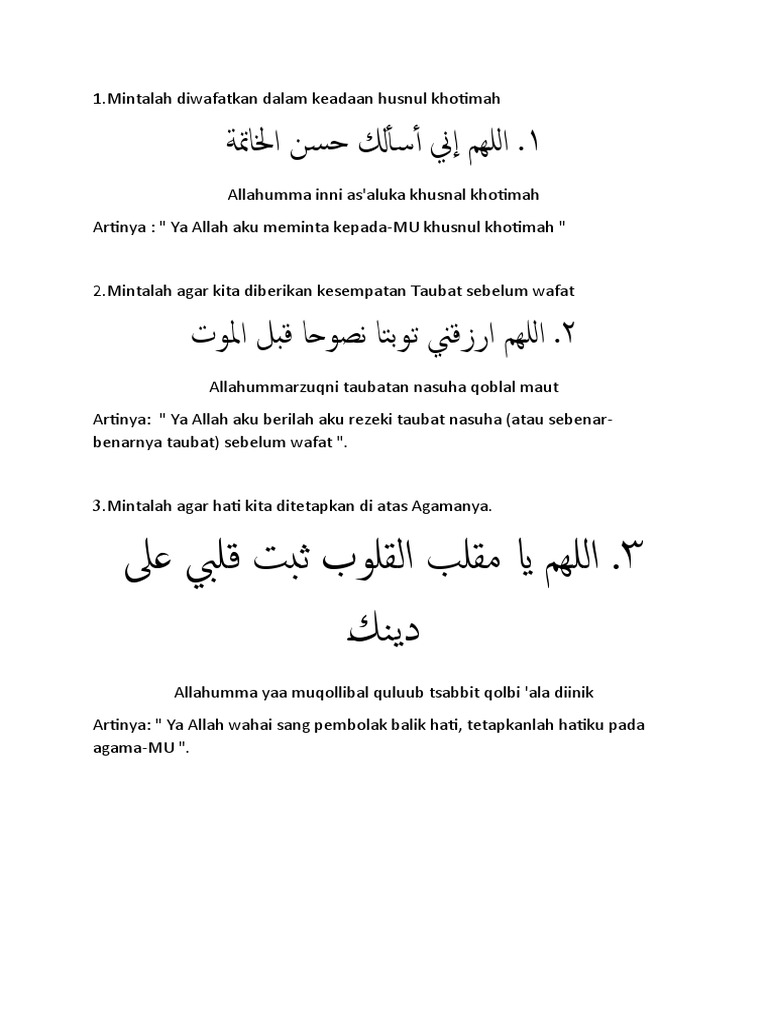 1.Mintalah diwafatkan dalam keadaan husnul khotimah
١. اللهم إني أسألك حسن الخاتمة
Allahumma inni as'aluka khusnal khotimah
Artinya : " Ya Allah aku meminta kepada-MU khusnul khotimah "
2.Mintalah agar kita diberikan kesempatan Taubat sebelum wafat
٢. اللهم ارزقني توبتا نصوحا قبل الموت
Allahummarzuqni taubatan nasuha qoblal maut
Artinya:  " Ya Allah aku berilah aku rezeki taubat nasuha (atau sebenar-
benarnya taubat) sebelum wafat ".
3.Mintalah agar hati kita ditetapkan di atas Agamanya.
٣. اللهم يا مقلب القلوب ثبت قلبي على
دينك
Allahumma yaa muqollibal quluub tsabbit qolbi 'ala diinik
Artinya: " Ya Allah wahai sang pembolak balik hati, tetapkanlah hatiku pada
agama-MU ".